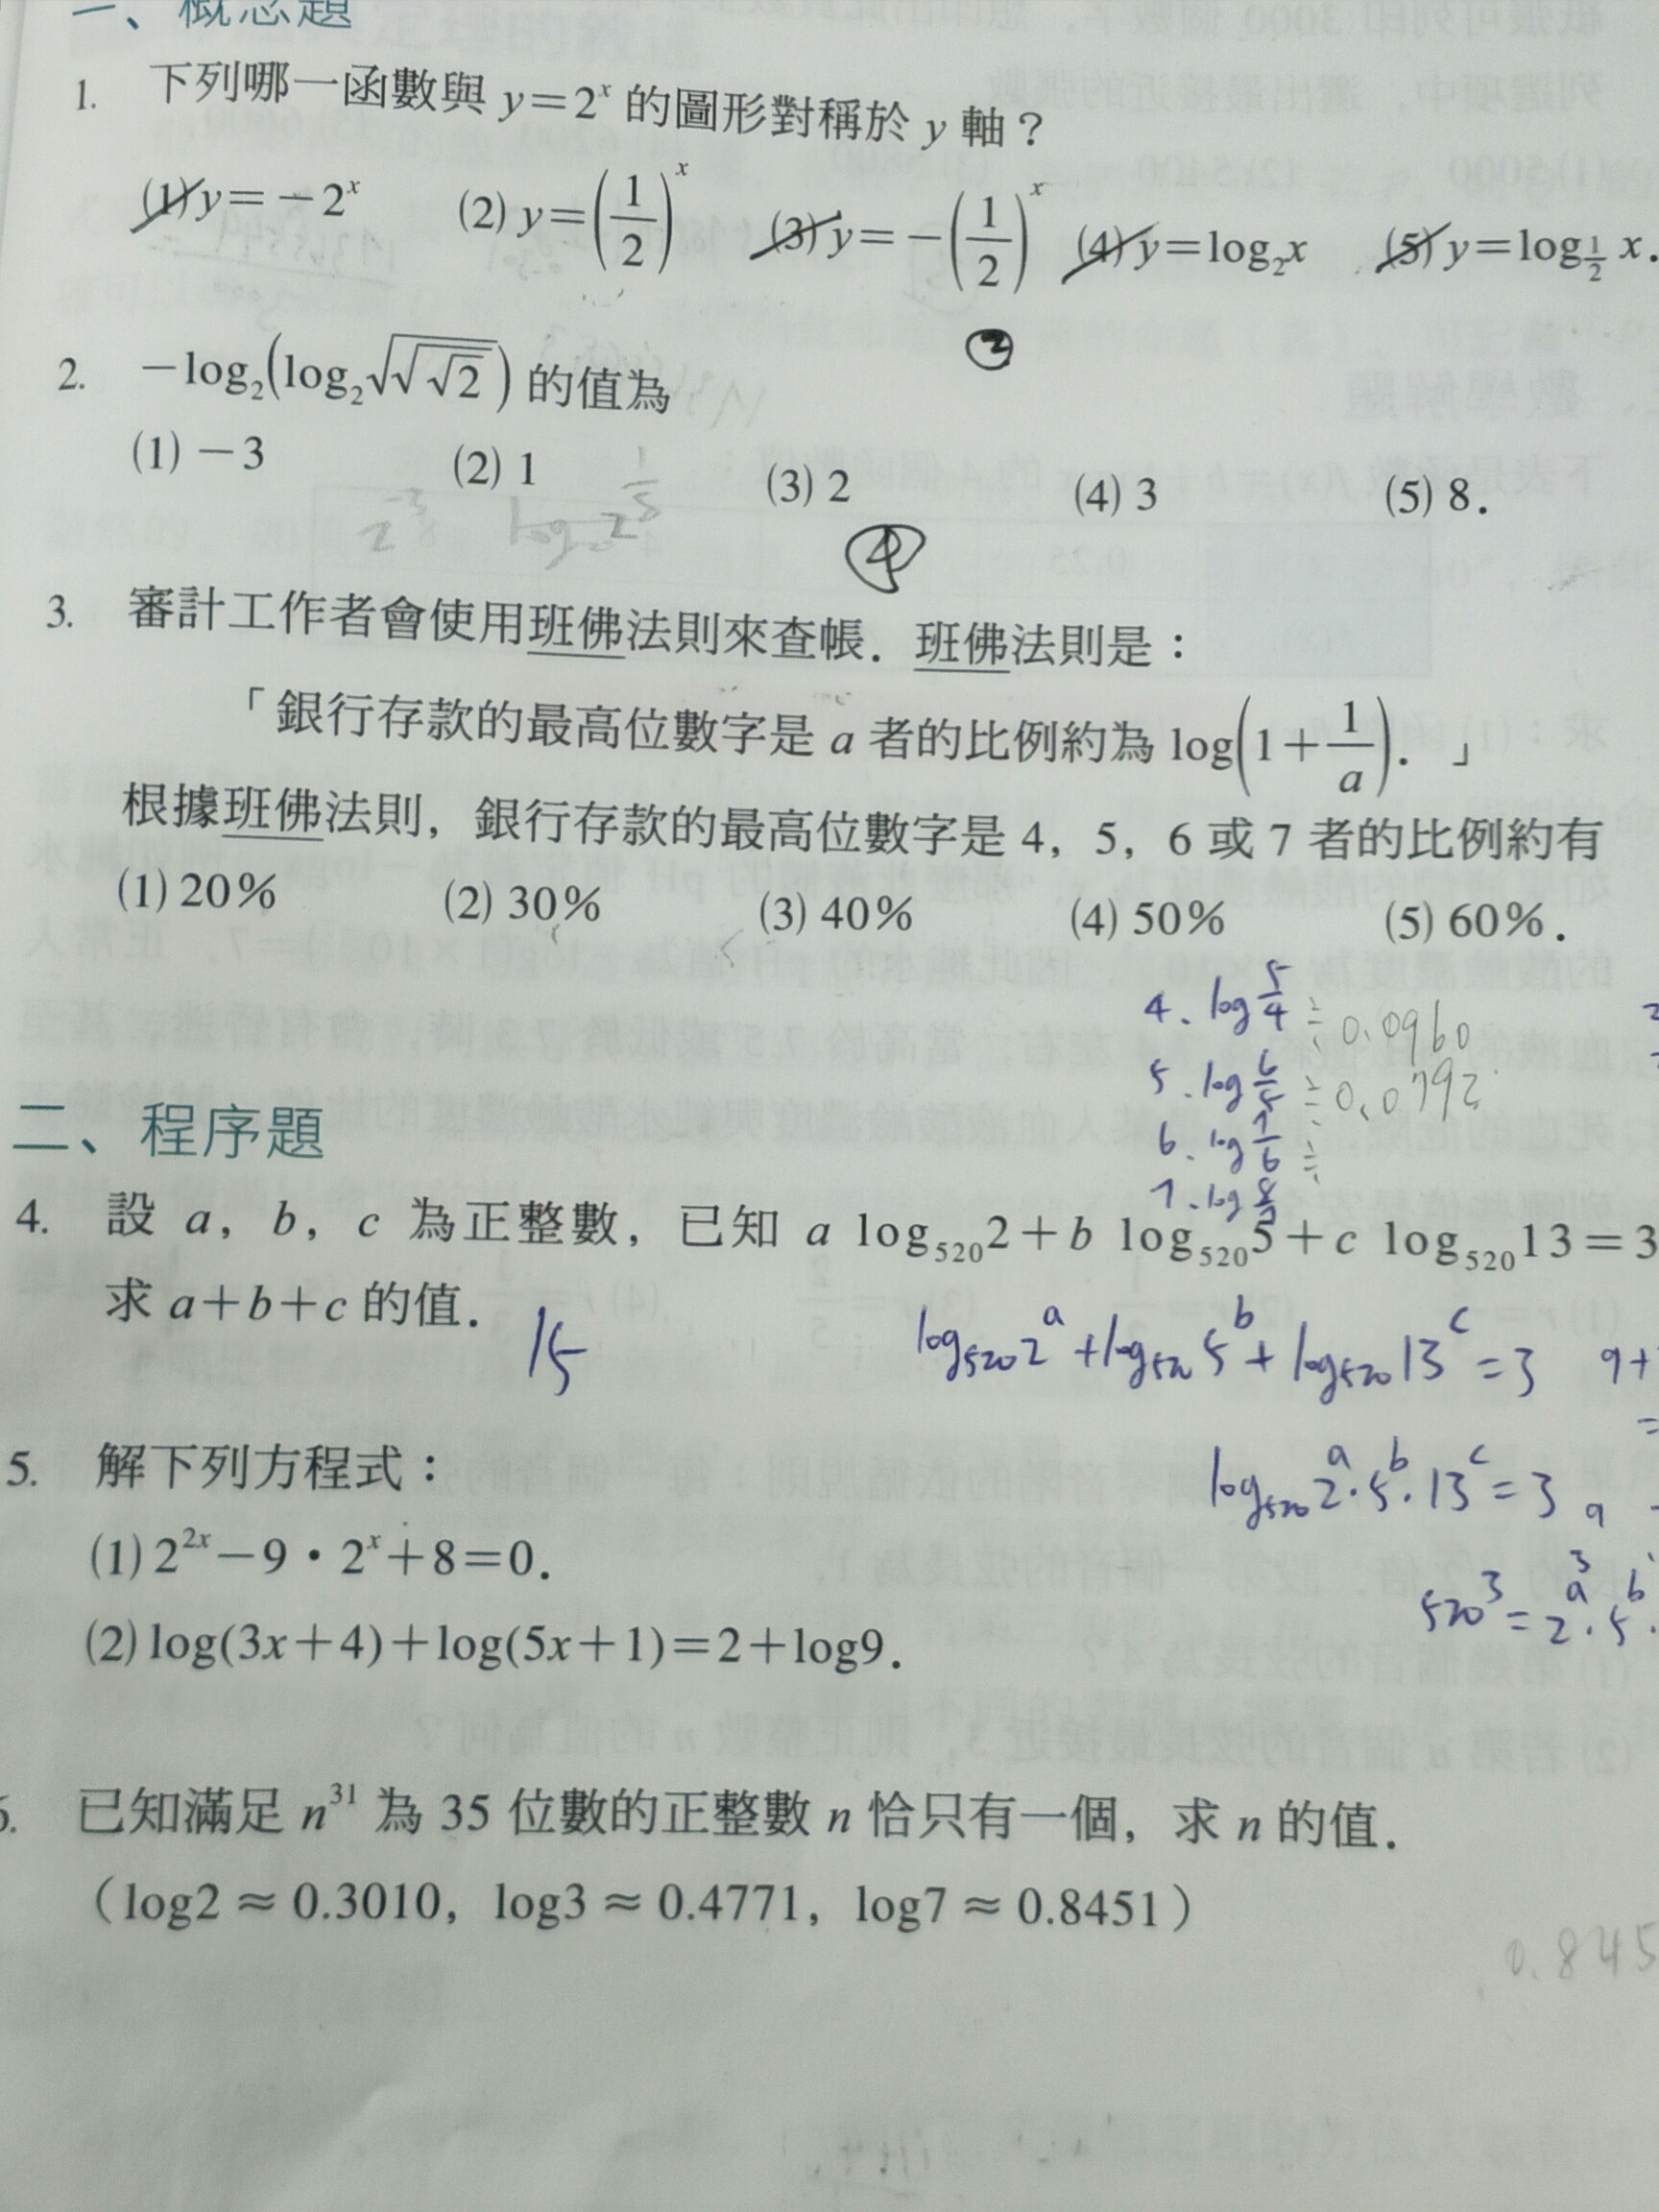 一、概念題
1. 下列哪一函數與 y=2^x 的圖形對稱於 y 軸?
(1) y=-2^x (2) y=(1/2)^x (3) y=-(1/2)^x (4) y=log_2 x (5) y=log_{1/2} x.
②
2. -log_2(log_2 √√√2) 的值為
(1) -3 (2) 1 (3) 2 (4) 3 (5) 8.
④
3. 審計工作者會使用班佛法則來查帳.班佛法則是:
「銀行存款的最高位數字是 a 者的比例約為 log(1+1/a).」
根據班佛法則,銀行存款的最高位數字是 4,5,6 或 7 者的比例約有
(1) 20% (2) 30% (3) 40% (4) 50% (5) 60%.
4. log 5/4 ≒ 0.0960
5. log 6/5 ≒ 0.0792
6. log 7/6 ≒
7. log 8/7
二、程序題
4. 設 a,b,c 為正整數,已知 a log_520 2+b log_520 5+c log_520 13=3
求 a+b+c 的值.
15
log_520 2^a + log_520 5^b + log_520 13^c = 3
log_520 2^a · 5^b · 13^c = 3
520^3 = 2^a · 5^b ·
5. 解下列方程式:
(1) 2^{2x}-9·2^x+8=0.
(2) log(3x+4)+log(5x+1)=2+log9.
已知滿足 n^31 為 35 位數的正整數 n 恰只有一個,求 n 的值.
(log2≈0.3010,log3≈0.4771,log7≈0.8451)
0.845